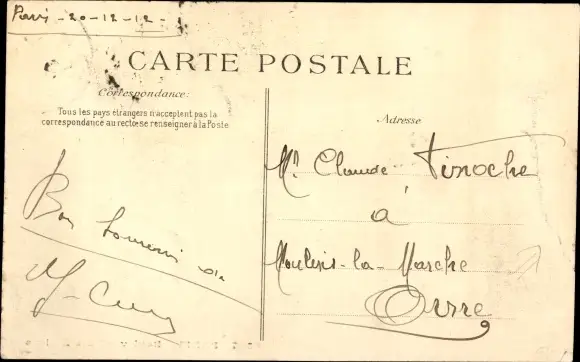 Paris - 20-12-12 -
CARTE POSTALE
Correspondance:
Tous les pays étrangers n'acceptent pas la
correspondance au recto se renseigner à la Poste
Adresse
Mr Claude Tinoche
à
Moulins-la-Marche
Orne
Bon Souvenir de